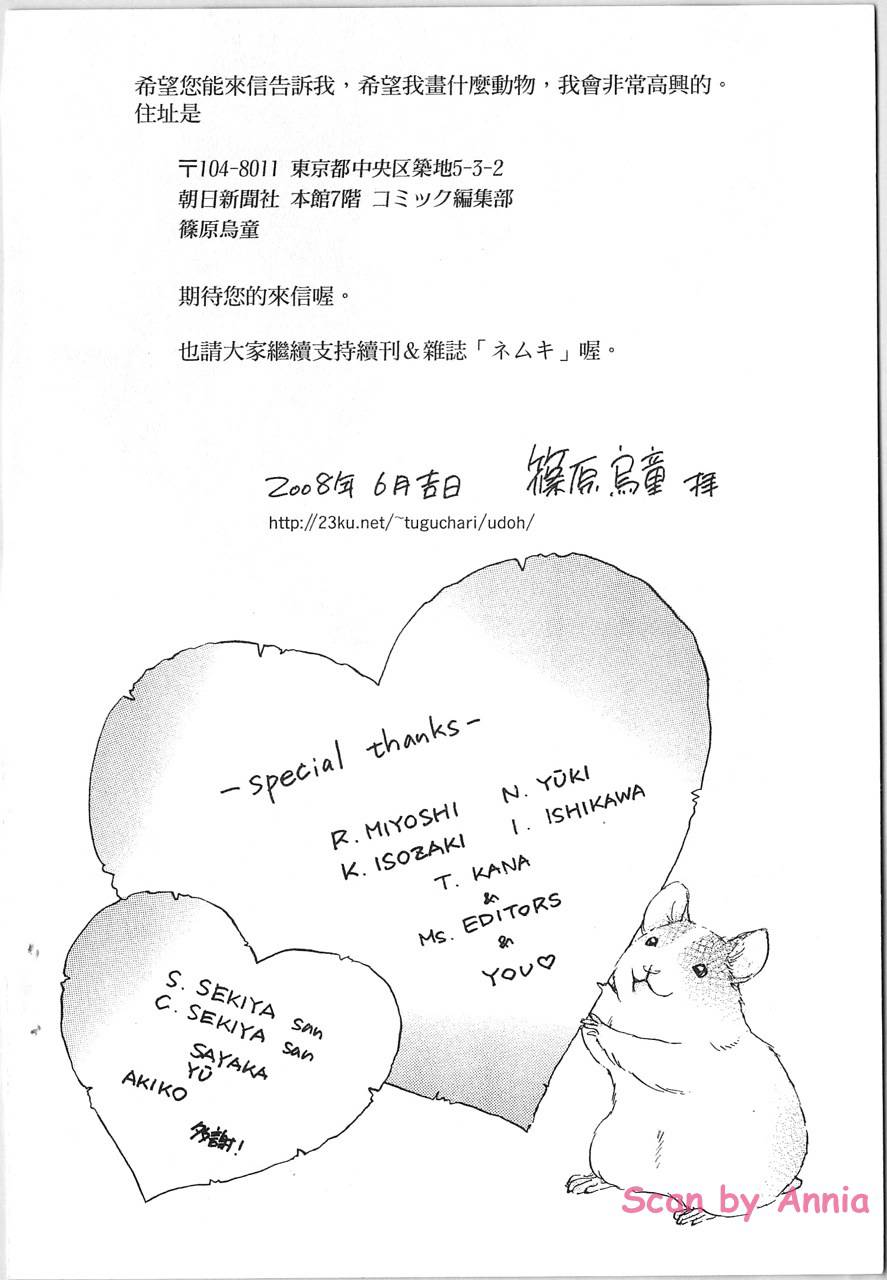 希望您能來信告訴我，希望我畫什麼動物，我會非常高興的。
住址是
〒104-8011 東京都中央区築地5-3-2
朝日新聞社 本館7階 コミック編集部
篠原烏童
期待您的來信喔。
也請大家繼續支持續刊＆雜誌「ネムキ」喔。
2008年 6月吉日 篠原烏童 拝
http://23ku.net/~tuguchari/udoh/
-special thanks-
R. MIYOSHI N. YŪKI
K. ISOZAKI I. ISHIKAWA
T. KANA
&
Ms. EDITORS
&
YOU♡
S. SEKIYA san
C. SEKIYA san
SAYAKA
YŪ
AKIKO
多謝!
Scan by Annia